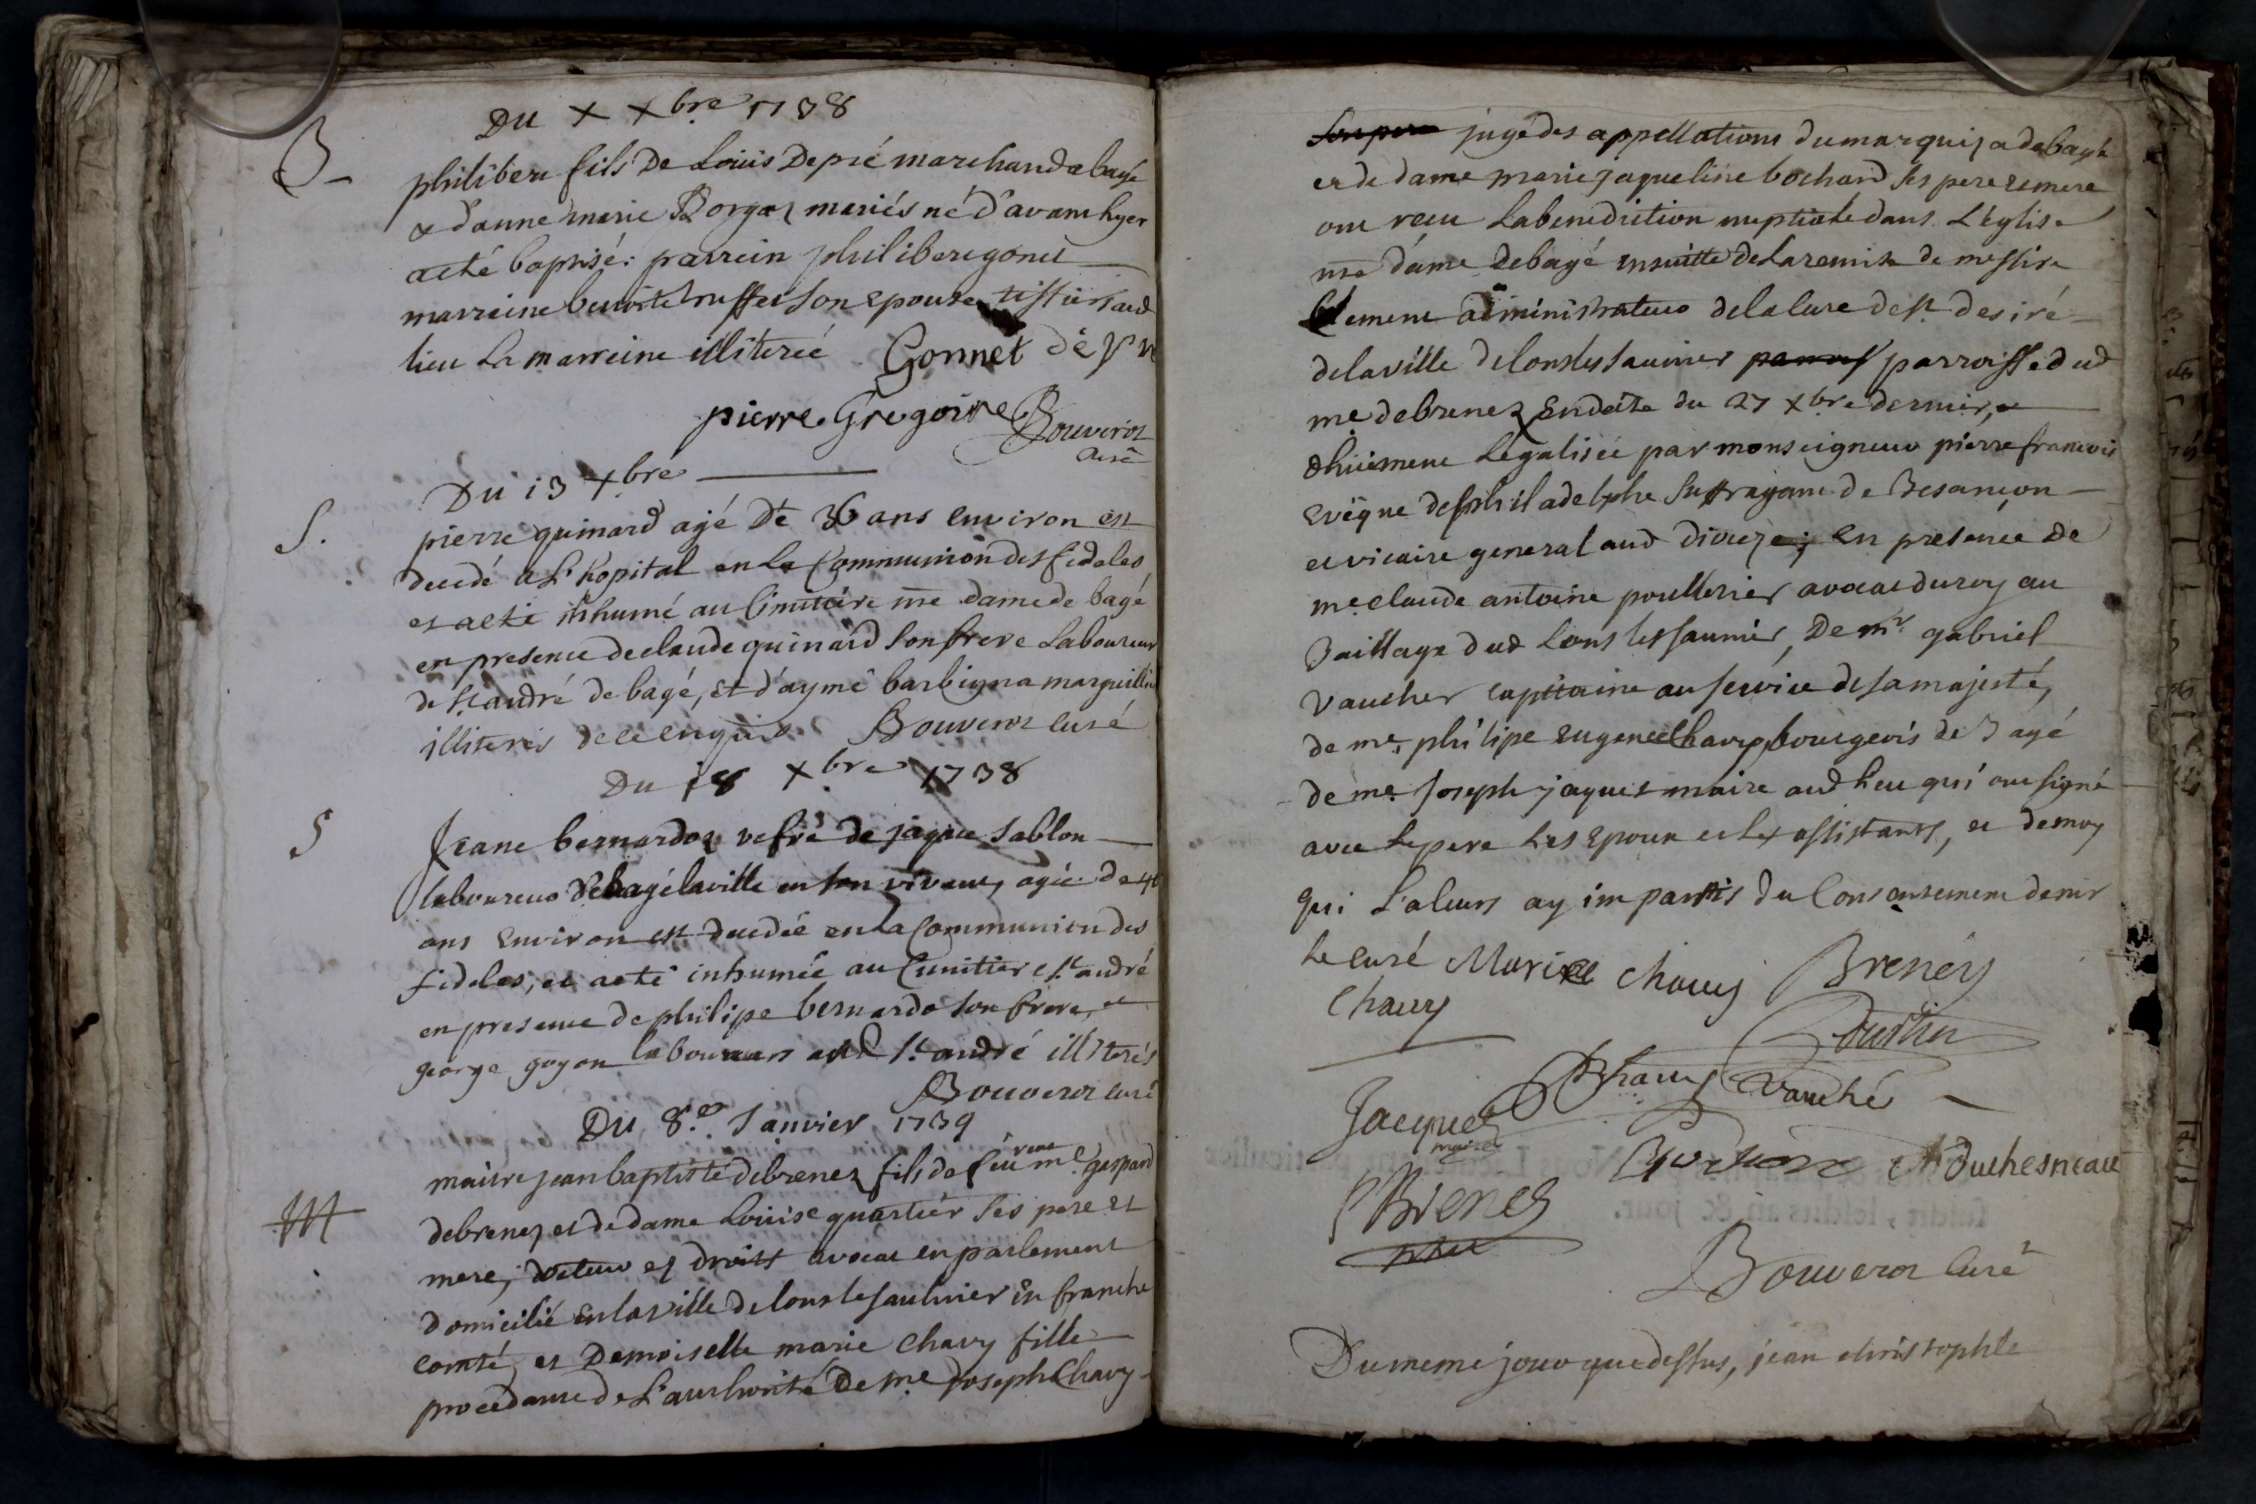 Du X Xbre 1738
B
philibert fils De Louis Depié marchand a bagé
& d'anne marie Borgat mariés né d'avant hyer
a eté baptisé: parrein philibert gonet
marreine benoite truffet son epouse tissier aud
lieu La marreine illiterée Gonnet
pierre Gregoire Bouverot
curé
Du 13 Xbre
S.
pierre guinard agé De 36 ans environ est
decedé a L'hopital en la Communion des fideles
et a eté inhumé au Cimitière nre dame de bagé
en presence de claude guinard son frere Laboureur
de St andré de bagé, et d'aymé barbigna marguillier
illiteres de ce enquis. Bouverot curé
Du 18 Xbre 1738
S
Jeane bernardot vefve de jaque Sablon
laboureur de bagé la ville en son vivant, agée de 40
ans Environ est decedée en la Communion des
fideles, et a eté inhumée au Cimitier St andré
en presence de philipe bernardo son frere, et
george goyon laboureurs aud St andré illiterés
Bouverot curé
Du 8e Janvier 1739
M
maitre jean baptiste debrenez fils de feu me gaspard
debrenez et de dame Louise quartier ses pere et
mere, docteur es droits avocat en parlement
domicilié en la ville de lons le saulnier en franche
comté, et Demoiselle marie Chavy fille
procedante de L'authorité De me Joseph Chavy
son pere juge des appellations du marquizat de bagé
et de dame marie jaqueline bochard ses pere et mere
ont reçu La benediction nuptiale dans L'église
nre dame de bagé ensuitte de La remise de messire
Clement administrateur de la Cure de St desiré
de la ville de lons les saunier parroisse dud
me debrenez En date du 27 Xbre dernier, et
dhüement Légalisée par monseigneur pierre francois
evêque de philadelphe suffragant de Besançon
et vicaire general aud Diocéze; en presence De
me claude antoine poullerier avocat du roy au
Baillage dud Lons les saunier, De mr gabriel
Vaucher capitaine au service de sa majesté,
de me philipe eugene Chavy, bourgeois de Bagé
de me Joseph jaques maire aud lieu qui ont signé
avec le pere Les epoux et les assistants, et de moy
qui La leurs ay impartis du Consentement de mr
le curé Marie Chavy Breney
Chavy
Jacques
maire
Chavy Vauché
Duchesneau
Brenez
Bouverot Curé
Du meme jour que dessus, jean christophle